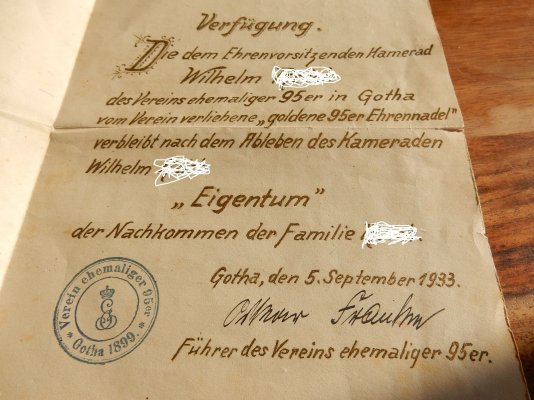 Verfügung.
Die dem Ehrenvorsitzenden Kamerad
Wilhelm
des Vereins ehemaliger 95er in Gotha
vom Verein verliehene „goldene 95er Ehrennadel"
verbleibt nach dem Ableben des Kameraden
Wilhelm
„Eigentum"
der Nachkommen der Familie
Gotha, den 5. September 1933.
Führer des Vereins ehemaliger 95er.
Verein ehemaliger 95er
* Gotha 1899. *